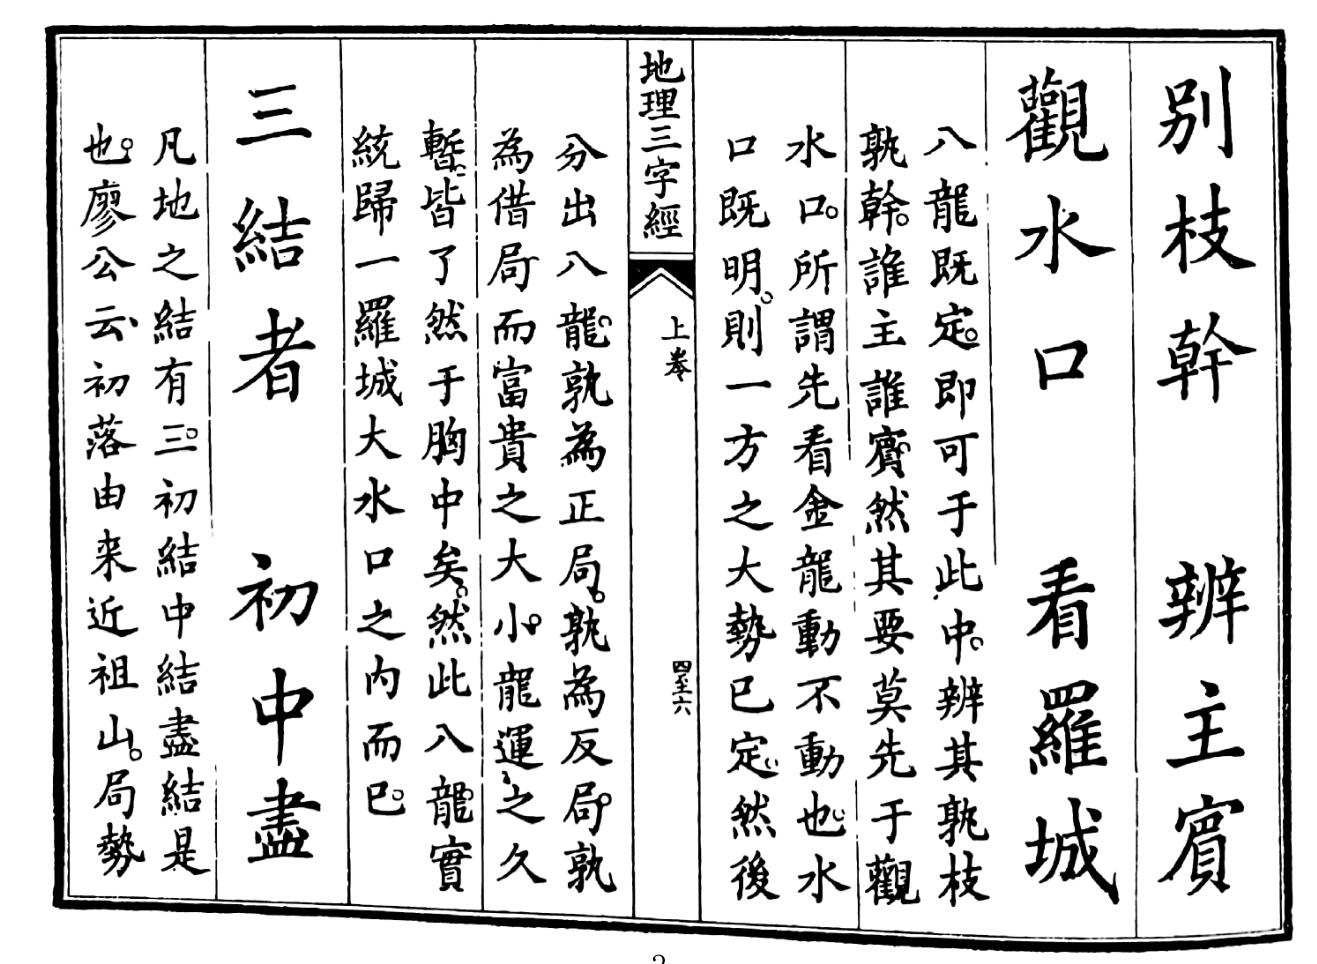 别枝幹　辨主賓
觀水口　看羅城
八龍既定。即可于此中。辨其孰枝
孰幹。誰主誰賓。然其要莫先于觀
水口。所謂先看金龍動不動也。水
口既明。則一方之大勢已定。然後
地理三字經
上卷
四至六
分出八龍。孰為正局。孰為反局。孰
為借局。而富貴之大小。龍運之久
暫。皆了然于胸中矣。然此八龍。實
統歸一羅城大水口之內而已。
三結者　初中盡
凡地之結有三。初結中結盡結是
也。廖公云。初落由来近祖山。局勢
2